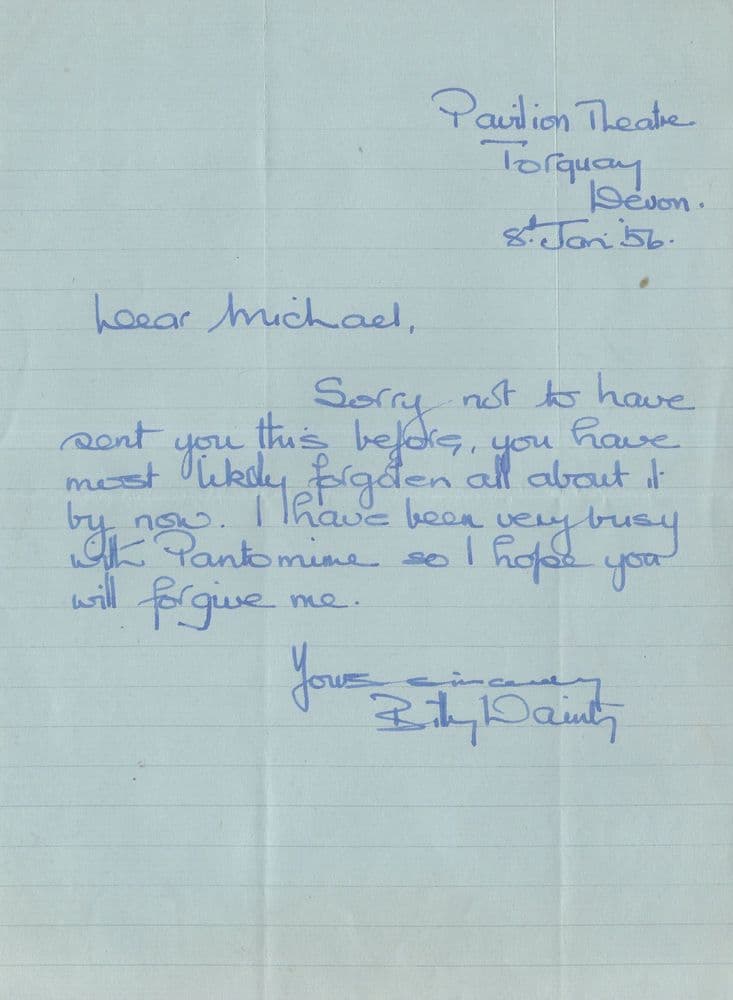 Pavilion Theatre
Torquay
Devon.
8th Jan '56.
Dear Michael,
Sorry not to have
sent you this before, you have
most likely forgoten all about it
by now. I have been very busy
with Pantomime so I hope you
will forgive me.
Yours sincerely
Billy Dainty